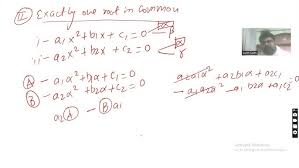 II Exactly one root in common
i - a₁x² + b₁x + c₁ = 0 α β
ii - a₂x² + b₂x + c₂ = 0 α γ
Ⓐ - a₁α² + b₁α + c₁ = 0
Ⓑ - a₂α² + b₂α + c₂ = 0
a₂Ⓐ - Ⓑa₁
a₂a₁α² + a₂b₁α + a₂c₁
- a₁a₂α² - a₁b₂α + a₁c₂ = 0